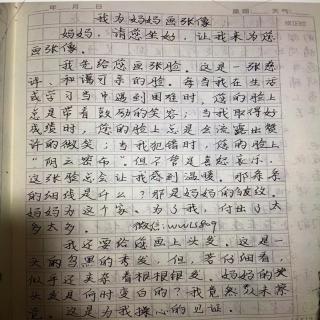 我为妈妈画张像
妈妈，请您坐好，让我来为您
画张像。
我先给您画张脸。这是一张慈
祥、和谒可亲的脸。每当我在生活
或学习当中遇到困难时，您的脸上
总是带着鼓励的笑容；当我取得好
成绩时，您的脸上总是会流露出赞
许的微笑；当我犯错时，您的脸上
"阴云密布"。但不管是喜怒哀乐，
这张脸总会让我感到温暖。那条条
的细线是什么？那是妈妈的皱纹。
妈妈为这个家。为了我，付出了太
多太多。
我还要给您画上头发。这是一
头的乌黑的秀发。但，若仔细看，
似乎还夹杂着根根银发。妈妈的美
头发是何时变白的？我竟然从未察
觉。这是为我操心的见证。